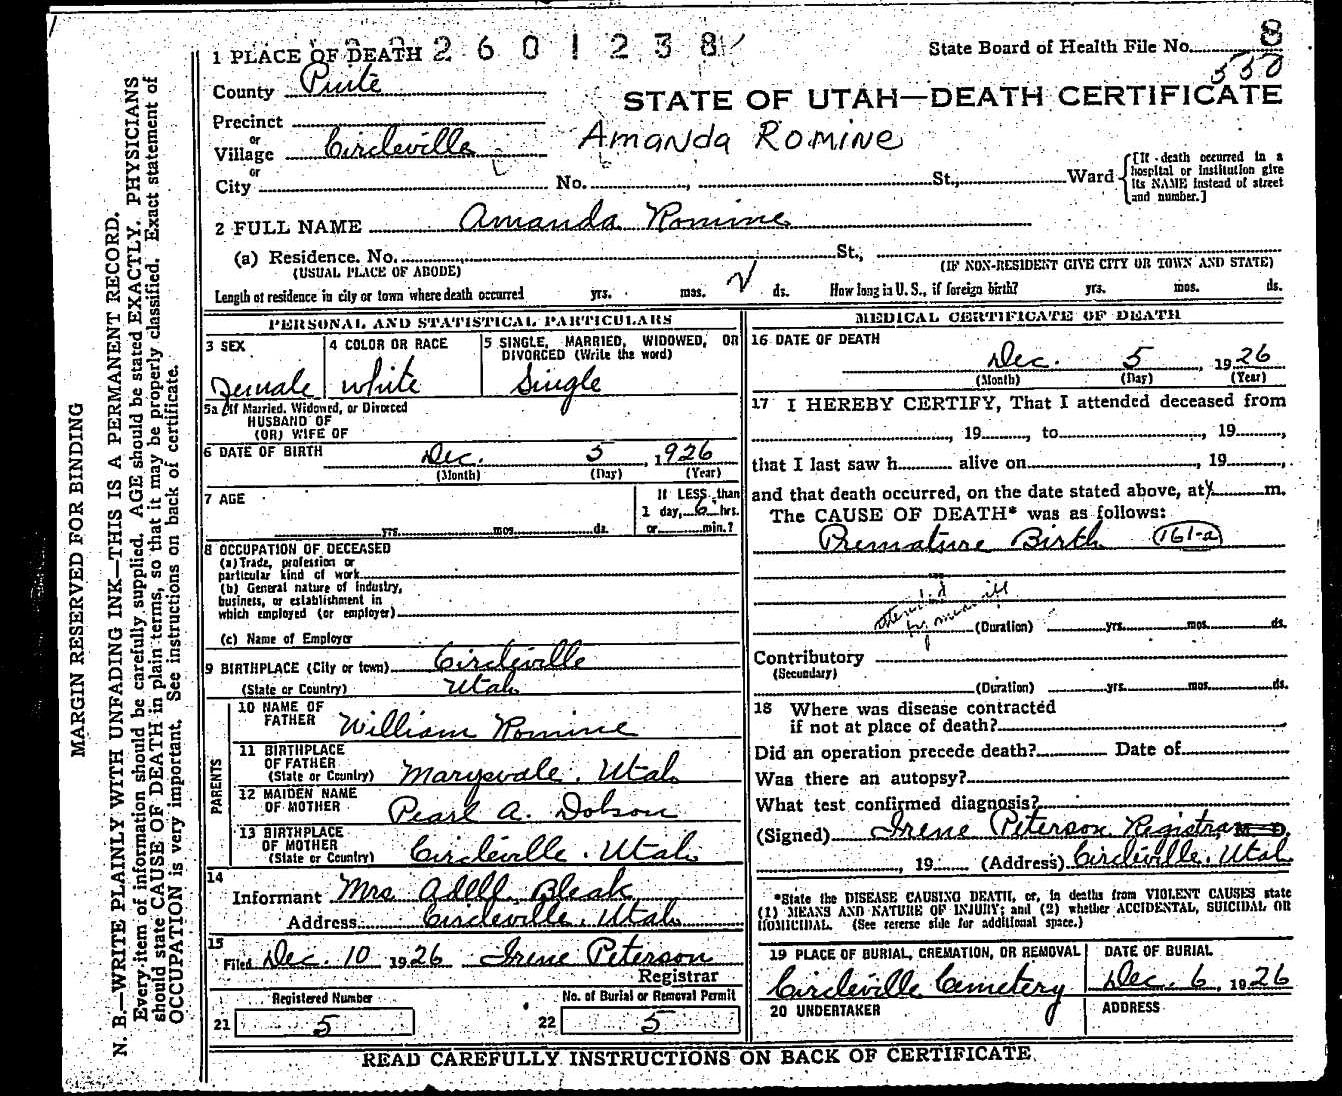 2 2 6 0 1 2 3 8
State Board of Health File No. 8
550
1 PLACE OF DEATH
County Piute
STATE OF UTAH—DEATH CERTIFICATE
Precinct
or
Village Circleville
Amanda Romine
or
City No. , St., Ward
[If death occurred in a
hospital or institution give
its NAME instead of street
and number.]
2 FULL NAME Amanda Romine
(a) Residence. No. St.,
(USUAL PLACE OF ABODE) (IF NON-RESIDENT GIVE CITY OR TOWN AND STATE)
Length of residence in city or town where death occurred yrs. mos. ds. How long in U. S., if foreign birth? yrs. mos. ds.
PERSONAL AND STATISTICAL PARTICULARS
3 SEX
Female
4 COLOR OR RACE
White
5 SINGLE, MARRIED, WIDOWED, OR
DIVORCED (Write the word)
Single
5a If Married, Widowed, or Divorced
HUSBAND OF
(OR) WIFE OF
6 DATE OF BIRTH Dec. 5, 1926
(Month) (Day) (Year)
7 AGE
yrs. mos. ds.
If LESS than
1 day, 6 hrs.
or min.?
8 OCCUPATION OF DECEASED
(a) Trade, profession or
particular kind of work
(b) General nature of industry,
business, or establishment in
which employed (or employer)
(c) Name of Employer
9 BIRTHPLACE (City or town) Circleville
(State or Country) Utah
PARENTS
10 NAME OF
FATHER William Romine
11 BIRTHPLACE
OF FATHER
(State or Country) Marysvale, Utah
12 MAIDEN NAME
OF MOTHER Pearl A. Dobson
13 BIRTHPLACE
OF MOTHER
(State or Country) Circleville, Utah
14
Informant Mrs. Adell Bleak
Address Circleville, Utah
15
Filed Dec. 10 1926 Irene Peterson
Registrar
Registered Number
21 5
No. of Burial or Removal Permit
22 5
MEDICAL CERTIFICATE OF DEATH
16 DATE OF DEATH
Dec. 5, 1926
(Month) (Day) (Year)
17 I HEREBY CERTIFY, That I attended deceased from
, 19 , to , 19 ,
that I last saw h alive on , 19 ,
and that death occurred, on the date stated above, at m.
The CAUSE OF DEATH* was as follows:
Premature Birth 161-a
attended
by
(Duration) yrs. mos. ds.
Contributory
(Secondary)
(Duration) yrs. mos. ds.
18 Where was disease contracted
if not at place of death?
Did an operation precede death? Date of
Was there an autopsy?
What test confirmed diagnosis?
(Signed) Irene Peterson Registrar M. D.
, 19 (Address) Circleville, Utah
*State the DISEASE CAUSING DEATH, or, in deaths from VIOLENT CAUSES state
(1) MEANS AND NATURE OF INJURY; and (2) whether ACCIDENTAL, SUICIDAL OR
HOMICIDAL. (See reverse side for additional space.)
19 PLACE OF BURIAL, CREMATION, OR REMOVAL
Circleville Cemetery
DATE OF BURIAL
Dec. 6, 1926
20 UNDERTAKER
ADDRESS
READ CAREFULLY INSTRUCTIONS ON BACK OF CERTIFICATE
MARGIN RESERVED FOR BINDING
N. B.—WRITE PLAINLY WITH UNFADING INK—THIS IS A PERMANENT RECORD.
Every item of information should be carefully supplied. AGE should be stated EXACTLY. PHYSICIANS
should state CAUSE OF DEATH in plain terms, so that it may be properly classified. Exact statement of
OCCUPATION is very important. See instructions on back of certificate.